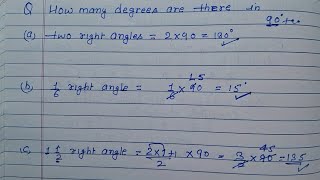 Q How many degrees are there in
90°
(a) two right angles = 2×90 = 180° ✓
(b) 1/6 right angle = 1/6 × 90 = 15° ✓
15
(c) 1 1/2 right angle = 2×1+1/2 × 90 = 3/2 × 90 = 135 ✓
45